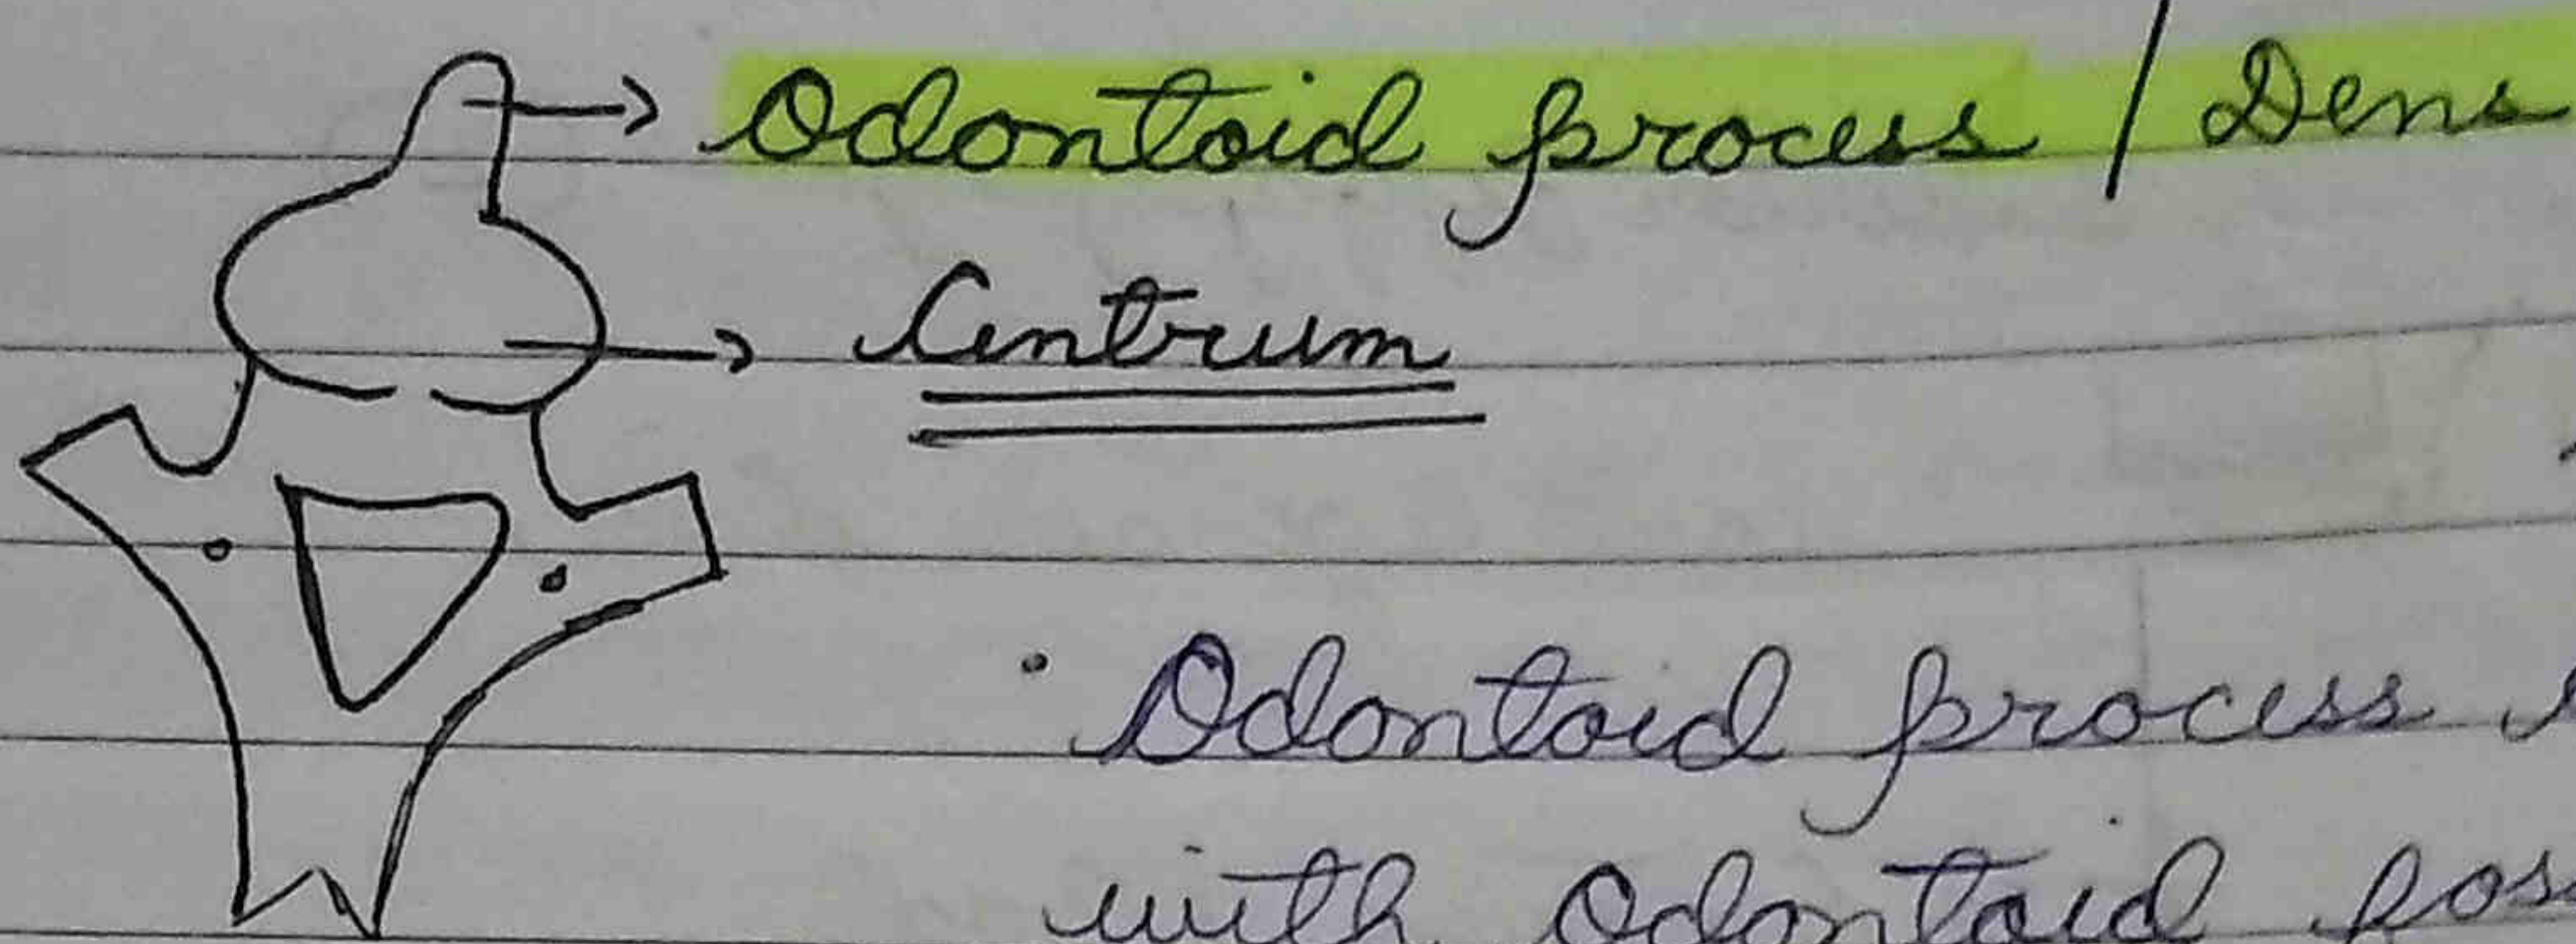 Odontoid process / Dens
Centrum
• Odontoid process
with Odontoid